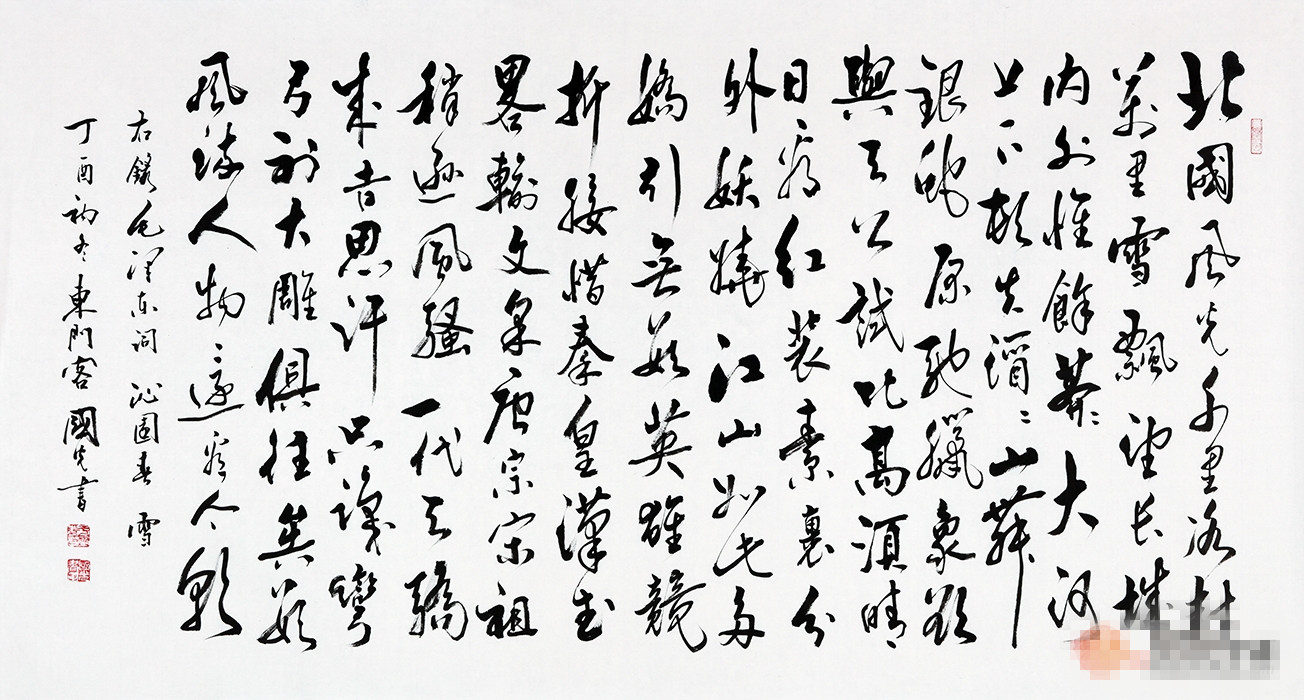 北國風光千里冰封
萬里雪飄望長城
內外惟餘莽莽大河
上下頓失滔滔山舞
銀蛇原馳臘象欲
與天公試比高須晴
日看紅裝素裹分
外妖嬈江山如此多
嬌引無數英雄競
折腰惜秦皇漢武
畧輸文采唐宗宋祖
稍遜風騷一代天驕
成吉思汗只識彎
弓射大雕俱往矣數
風流人物還看今朝
右錄毛澤東詞 沁園春 雪
丁酉初冬東門客國先書